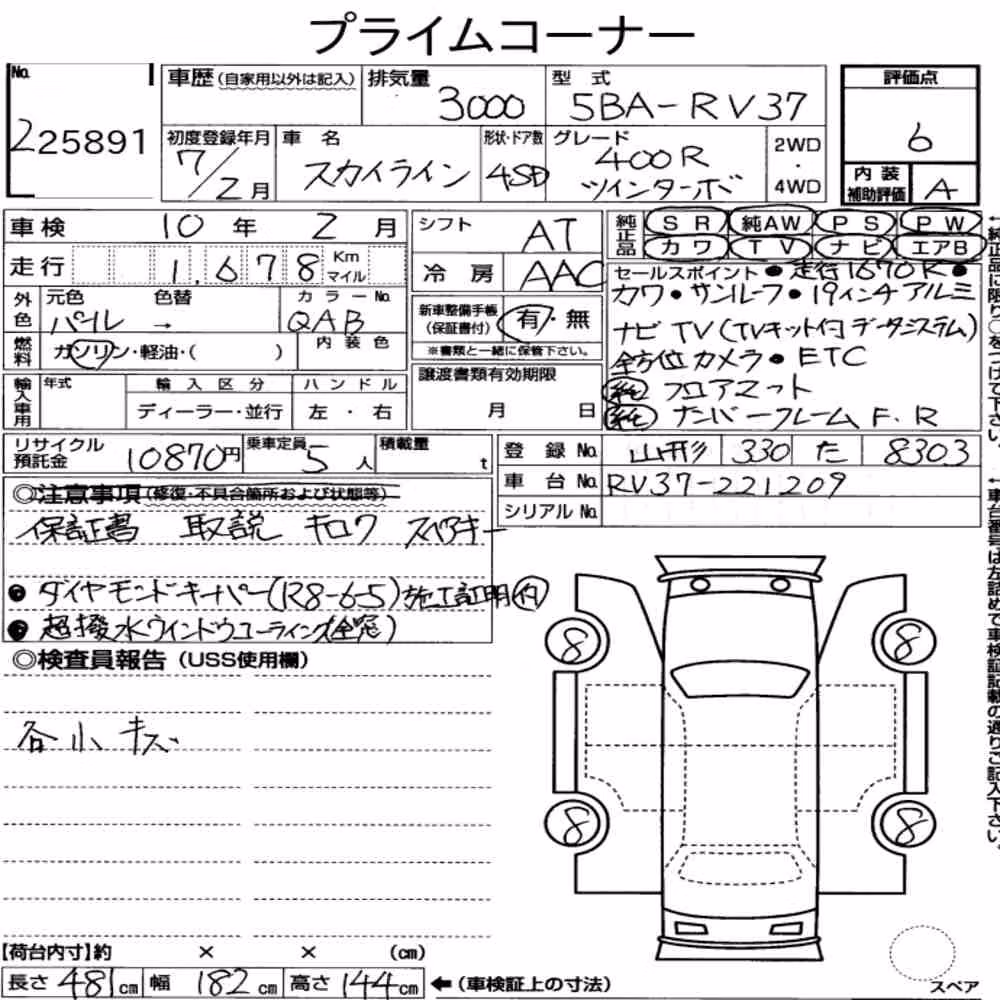 プライムコーナー
No. 225891
車歴 (自家用以外は記入) 排気量 3000 型式 5BA-RV37
初度登録年月 7/2月 車名 スカイライン 形状・ドア数 4SD グレード 400R ツインターボ 2WD・4WD
評価点 6
内装補助評価 A
車検 10年 2月
走行 1,678 Km マイル
外色 元色 パール → 色替 カラーNo. QAB
燃料 ガソリン・軽油・( ) 内装色
輸入車用 年式 輸入区分 ディーラー・並行 ハンドル 左・右
シフト AT
冷房 AAC
新車整備手帳 (保証書付) 有・無
※書類と一緒に保管下さい。
譲渡書類有効期限
月 日
純正品 SR 純AW PS PW
カワ TV ナビ エアB
セールスポイント ●走行1670K●
カワ・サンルーフ・19インチアルミ
ナビTV(TVキット付データシステム)
全方位カメラ・ETC
純 フロアマット
純 ナンバーフレームF.R
←純正品に限り○をつけて下さい。
リサイクル預託金 10870円 乗車定員 5人 積載量 t
登録No. 山形 330 た 8303
車台No. RV37-221209
シリアルNo.
←車台番号は左詰めで車検証記載の通りご記入下さい。
◎注意事項 (修復・不具合箇所および状態等)
保証書 取説 キロク スペアキー
●ダイヤモンドキーパー(R8-6-5)施工証明付
●超撥水ウインドウコーティング(全窓)
◎検査員報告 (USS使用欄)
各小キズ
8 8
8 8
【荷台内寸】約 × × (cm)
長さ 481cm 幅 182cm 高さ 144cm ←(車検証上の寸法)
スペア